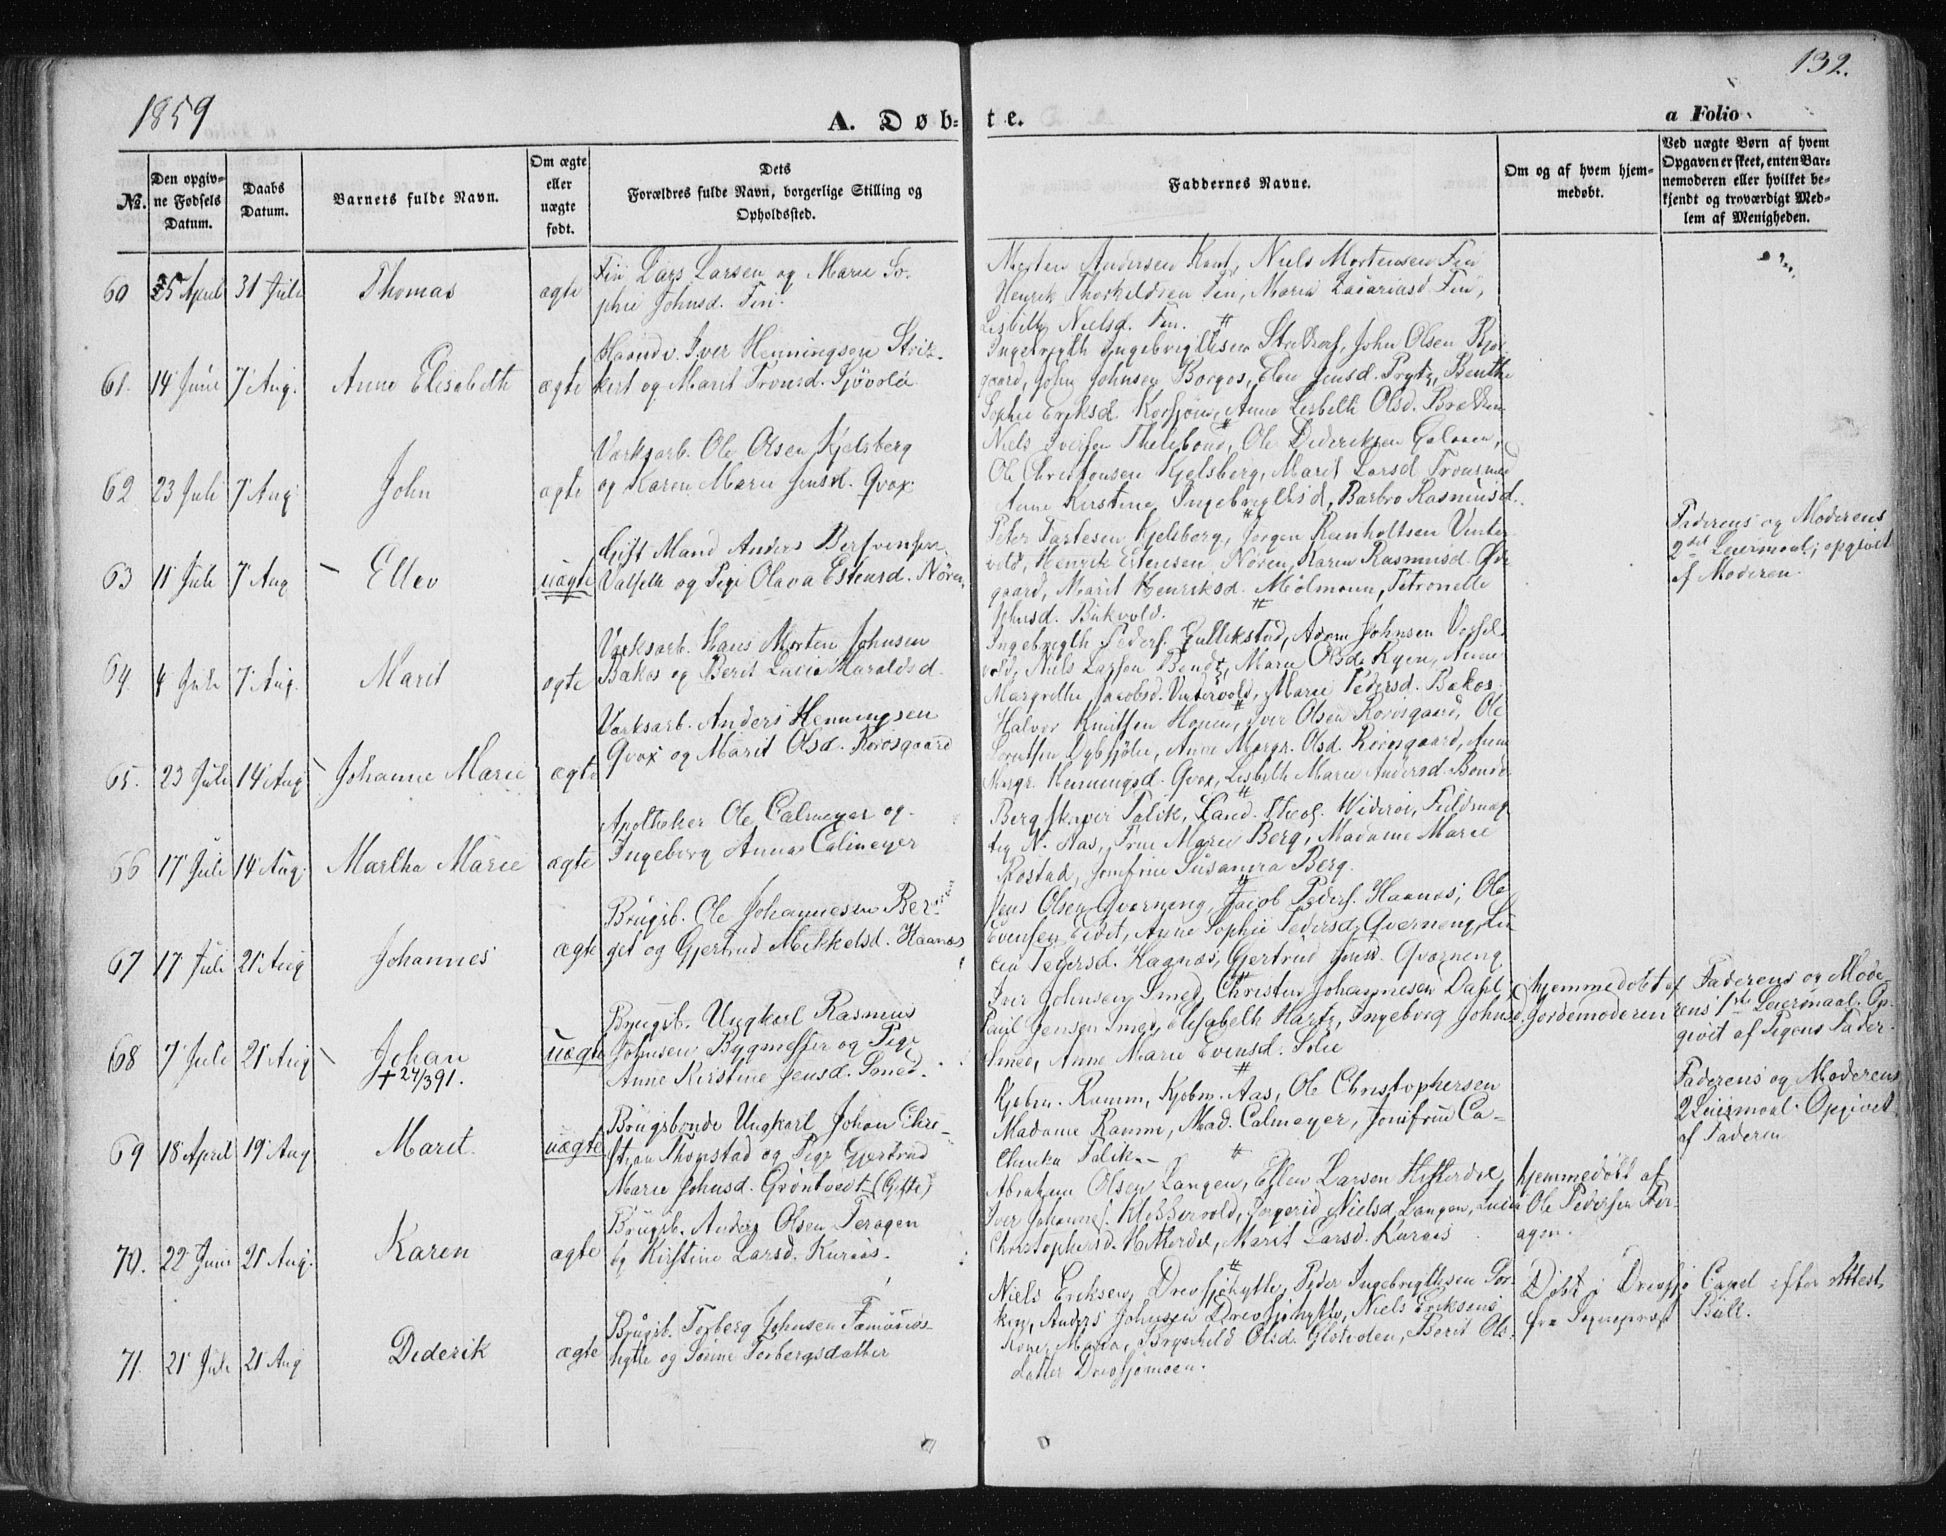 1859
132.
A. Døb-
te.
a Folio
No.
Den opgiv-
ne Fødsels
Datum.
Daabs
Datum.
Barnets fulde Navn.
Om ægte
eller
uægte
født.
Dets
Forældres fulde Navn, borgerlige Stilling og
Opholdssted.
Faddernes Navne.
Om og af hvem hjem-
medøbt.
Ved uægte Børn af hvem
Opgaven er skeet, enten Bar-
nemoderen eller hvilket be-
kjendt og troværdigt Med-
lem af Menigheden.
60 25 April 31 Juli Thomas ægte
Fin Lars Larsen og Marie So-
phie Johnsd. Fin.
Morten Andersen Kant, Niels Mortensen Fin
Henrik Thorkildsen Fin, Maria Zacariasd. Fin,
Lisbeth Nielsd. Fin.
61. 14 Juni 7 Aug. Anne Elisabeth ægte
Iver Henningsen Strik-
kert og Marit Tronsd. Sjøvold
Ingebrigth Ingebrigthsen, John Olsen
gaard, John Johnsen Borgos, Elen Jensd. Prytz, Benthe
Sophie Eriksd. Korsjøen, Anne Lisbeth Olsd.
62 23 Juli 7 Aug John ægte
Værksarb. Ole Olsen Kjelsberg
og Karen Marie Jensd. Qvax
Niels Iversen, Ole Dideriksen Galaaen,
Ole Christensen Kjelsberg, Marit Larsd
Anne Kirstine Ingebrigthsd, Barbro Rasmusd.
63 11 Juli 7 Aug Ellev uægte
Gift Mand Anders Bersvensen
Valset og Pige Olava Estensd. Nøren
Peter Kjelsberg, Jørgen Reinholtsen Vinter-
vold, Henrik Estensen Nøren, Karen Rasmusd.
gaard, Marit Henriksd. Mølmann, Petronelle
Johnsd. Bukvold.
Faderens og Moderens
2det Leiermaal; opgivet
af Moderen.
64. 4 Juli 7 Aug. Marit ægte
Værksarb. Hans Morten Johnsen
Bakos og Berit Lucie Haraldsd.
Ingebrigth Peders. Gullikstad, Adam Johnsen
vold, Niels Larsen Bendz, Marie Olsd. Ryen, Anne
Margrethe Jacobsd. Vintervold, Marie Pedersd. Bakos.
65. 23 Juli 14 Aug Johanne Marie ægte
Værksarb. Anders Henningsen
Qvax og Marit Olsd. Rørosgaard
Halvor Knutsen, Iver Olsen Rørosgaard, Ole
Anne Margr. Olsd. Rørosgaard, Anne
Margr. Henningsd. Qvax, Lisbeth Marie Andersd.
66 17 Juli 14 Aug. Martha Marie ægte
Apotheker Ole Calmeyer og
Ingeborg Anna Calmeyer
Bergskriver Falik, Cand. Theol. Widerøe,
N. Aas, Frue Marie Berg, Madame Marie
Rostad, Jomfrue Susanna Berg.
67 17 Juli 21 Aug Johannes ægte
Brugsb. Ole Johannesen Ber-
get og Gjertrud Mikkelsd. Haanæs
Jens Olsen Qværneng, Jacob Peders. Haanæs, Ole
Evensen Eidet, Anne Sophie Pedersd. Qværneng, Lu-
cia Pedersd. Haanæs, Gjertrud Jensd. Qværneng
68 7 Juli 21 Aug Johan uægte
+ 24/3 91.
Brugsb. Ungkarl Rasmus
Johnsen Bygmester og Pige
Anne Kirstine Jensd. Smed.
Iver Johnsen Smed, Christen Johannesen Dahl,
Paul Jensen Smed, Elisabeth Hartz, Ingeborg Johnsd.
Smed, Anne Marie Evensd. Solie
hjemmedøbt af
Gjordemoderen
Faderens og Mode-
rens 1ste Leiermaal. Op-
givet af Pigens Fader.
69 18 April 19 Aug Marit. uægte
Brugsbonde Ungkarl Johan Chri-
stian Thomstad og Pige Gjertrud
Marie Johnsd. Grøntvedt (Gifte)
Kjøbm. Ramm, Kjøbm. Aas, Ole Christophersen
Madame Ramm, Mad. Calmeyer, Jomfrue Ca-
Falik.
Faderens og Moderens
2 Leiermaal. Opgivet
af Faderen
70. 22 Juni 21 Aug. Karen ægte
Brugsb. Anders Olsen Feragen
og Kirstine Larsd. Kuraas.
Abraham Olsen Langen, Ellen Larsen Hitterdal
Iver Johannes. Klettervold, Ingerid Nielsd Langen, Lucia
Christophersd. Hitterdal, Marit Larsd. Kuraas
hjemmedøbt af
Ole Pedersen Fer-
agen.
71. 21 Juli 21 Aug Dederik ægte
Brugsb. Torberg Johnsen Fæmundss-
hytte og Torbergsdatter
Niels Eriksen Drevsjøhytte, Peder Ingebrigthsen
Anders Johnsen Drevsjøhytte, Niels Eriksens
Kone Maria, Brynhild Olsd. Glotsden, Berit Ols-
datter Drevsjømoen.
Døbt i Drevsjø Capel efter Attest
fra Sogneprest Bull.